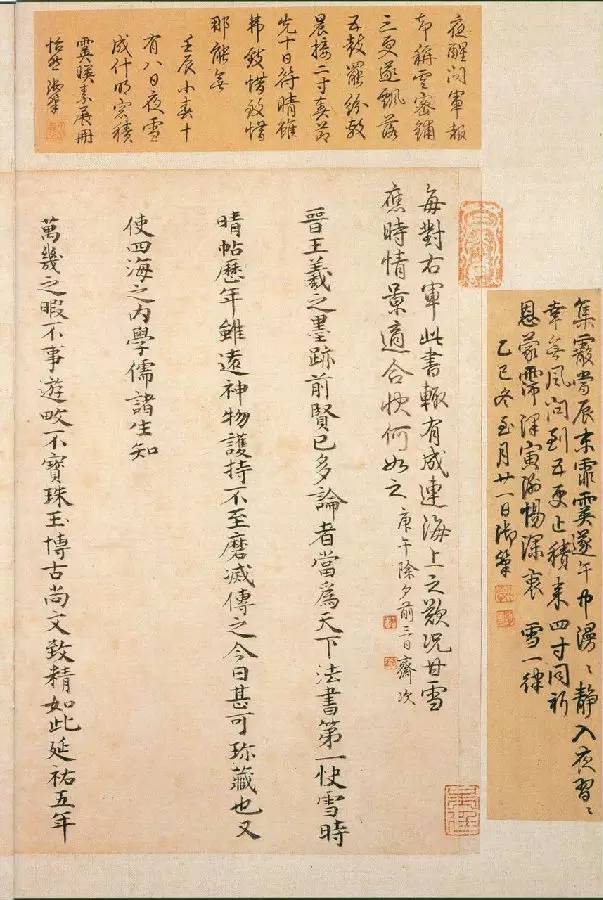 集霰當辰末霏霙遂午中漫〻靜入夜習〻
幸無風问到五更止積来四寸同祈
恩蒙霈澤寅惕深衷 雪一律
乙巳冬至月廿一日御筆
夜醒问軍報
却稱雲密鋪
三更遂飄落
五鼓罷紛敷
晨接二寸
先十日符晴雖
弗致惜致惜
那能無
壬辰小春十
有八日夜雪
成什明窓積
霙暎素展册
怡然 御筆
每對右軍此書輒有成連海上之歎況甘雪
應時情景適合快何如之 庚午除夕前三日齋次
晉王羲之墨跡前賢已多論者當爲天下法書第一快雪時
晴帖歷年雖遠神物護持不至磨滅傳之今日甚可珎藏也又
使四海之內學儒諸生知
萬幾之暇不事遊畋不寶珠玉博古尚文致精如此延祐五年